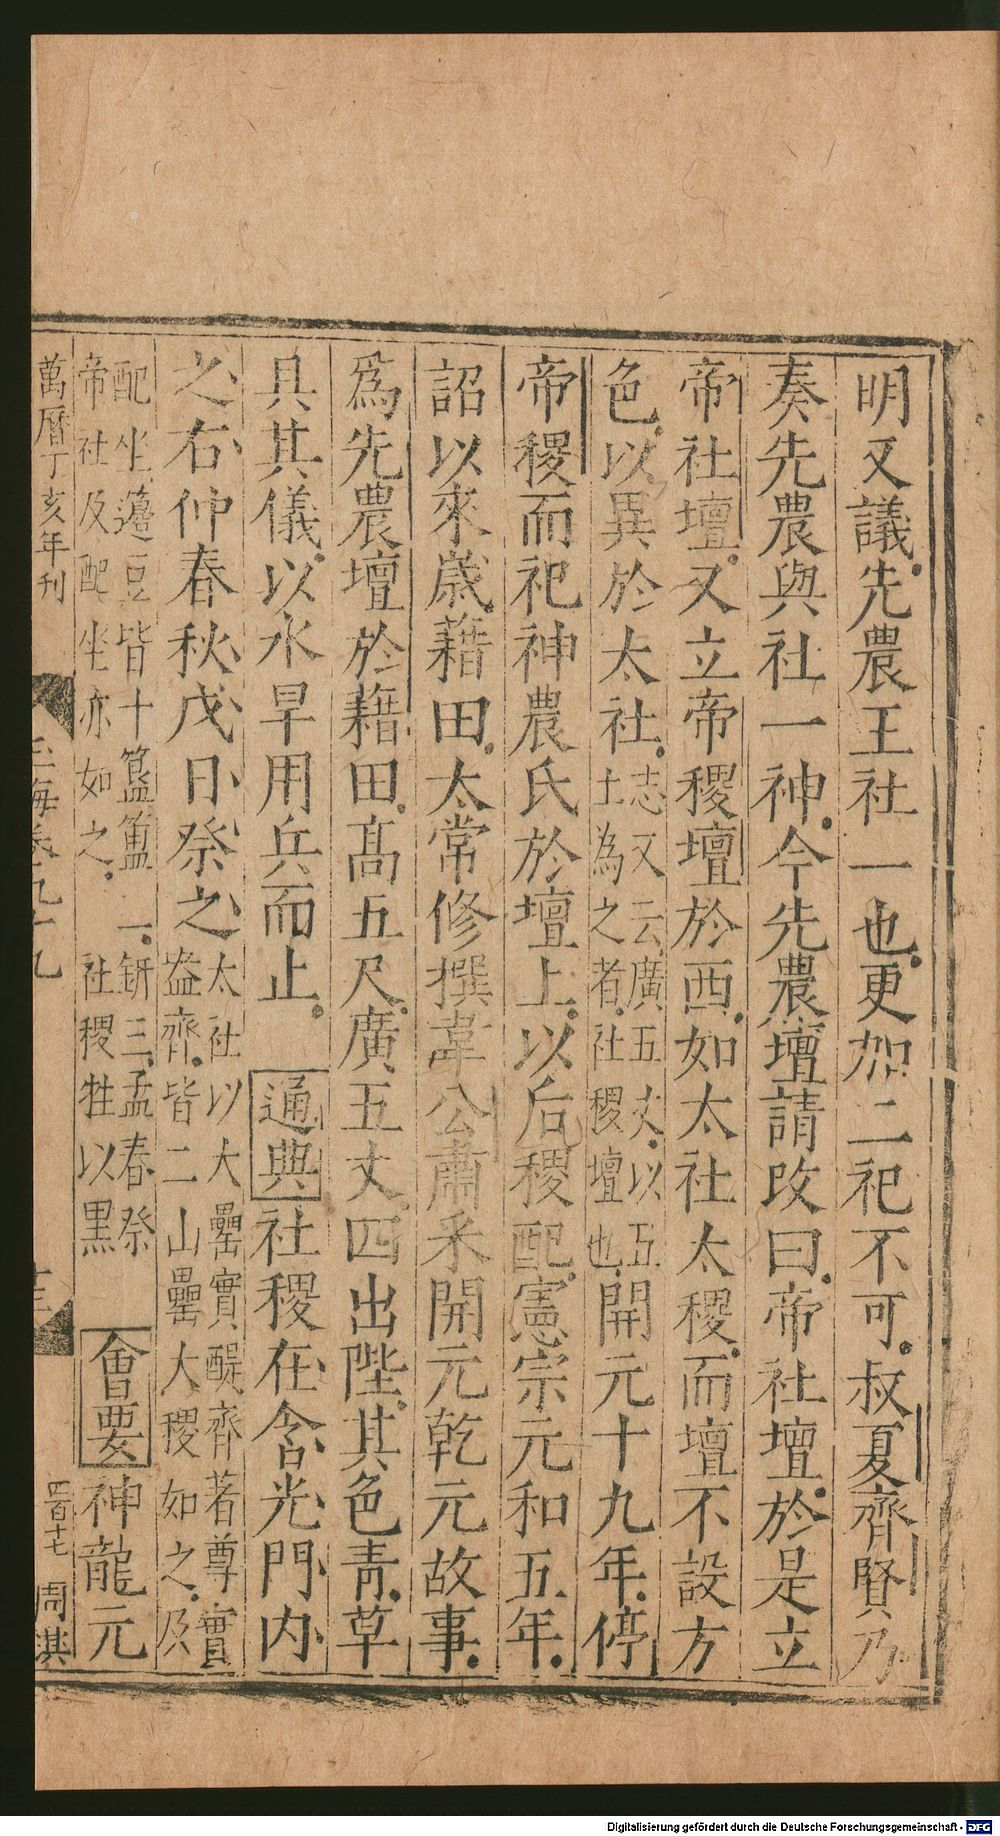 明又議先農王社一也更加二祀不可叔夏齊賢乃
奏先農與社一神今先農壇請改曰帝社壇於是立
帝社壇又立帝稷壇於西如太社太稷而壇不設方
色以異於太社志又云廣五丈以五土為之者社稷壇也開元十九年停
帝稷而祀神農氏於壇上以后稷配憲宗元和五年
詔以來歲藉田太常修撰韋公肅采開元乾元故事
為先農壇於藉田高五尺廣五丈四出陛其色青草
具其儀以水旱用兵而止 通典社稷在含光門內
之右仲春秋戊日祭之太社以大罍實醍齊著尊實盎齊皆二山罍大稷如之及
配坐籩豆皆十簋簠二鈃三孟春祭帝社及配坐亦如之社稷牲以黑 會要神龍元
萬曆丁亥年刊
玉海卷九十九
十三
四百十七 周淇
Digitalisierung gefördert durch die Deutsche Forschungsgemeinschaft - DFG